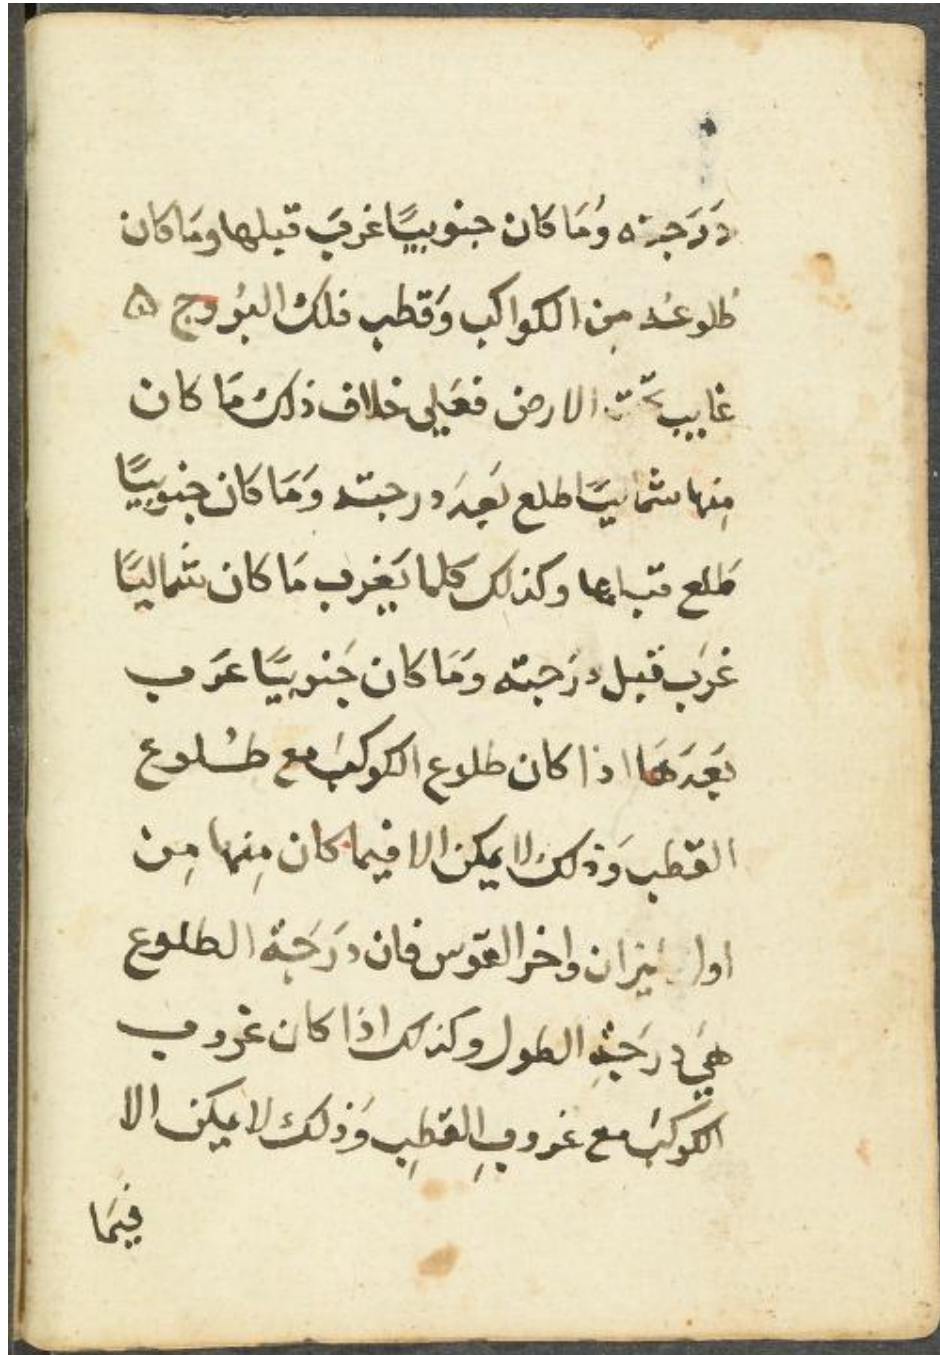 دَرَجته وُمَا كَان جنوبيًا غربَ قبلها ومَا كان
طلوعُه مِن الكواكب وَقطب فلك البُروج ه
غايب تحت الارض فعَلي خلاف ذلك مَا كان
مِنها شماليًا طلع بَعدَ درجته وَمَا كان جنوبيًا
طلع قبلها وكذلك كلما يَغرب مَا كان شماليًا
غرَب قبل درَجته وَمَا كان جَنوبيًا غرَب
بَعدَهَا اذا كان طلوع الكوكب مع طلُوع
القطب وَذلك لا يمكن الا فيما كان مِنها مِن
اول الميزان واخر القوس فان دَرَجَة الطلوع
هيَ درَجَة الطول وكذلك اذَا كان غروب
الكوكب مع غروبِ القطبِ وَذلك لا يمكن الا
فيمَا